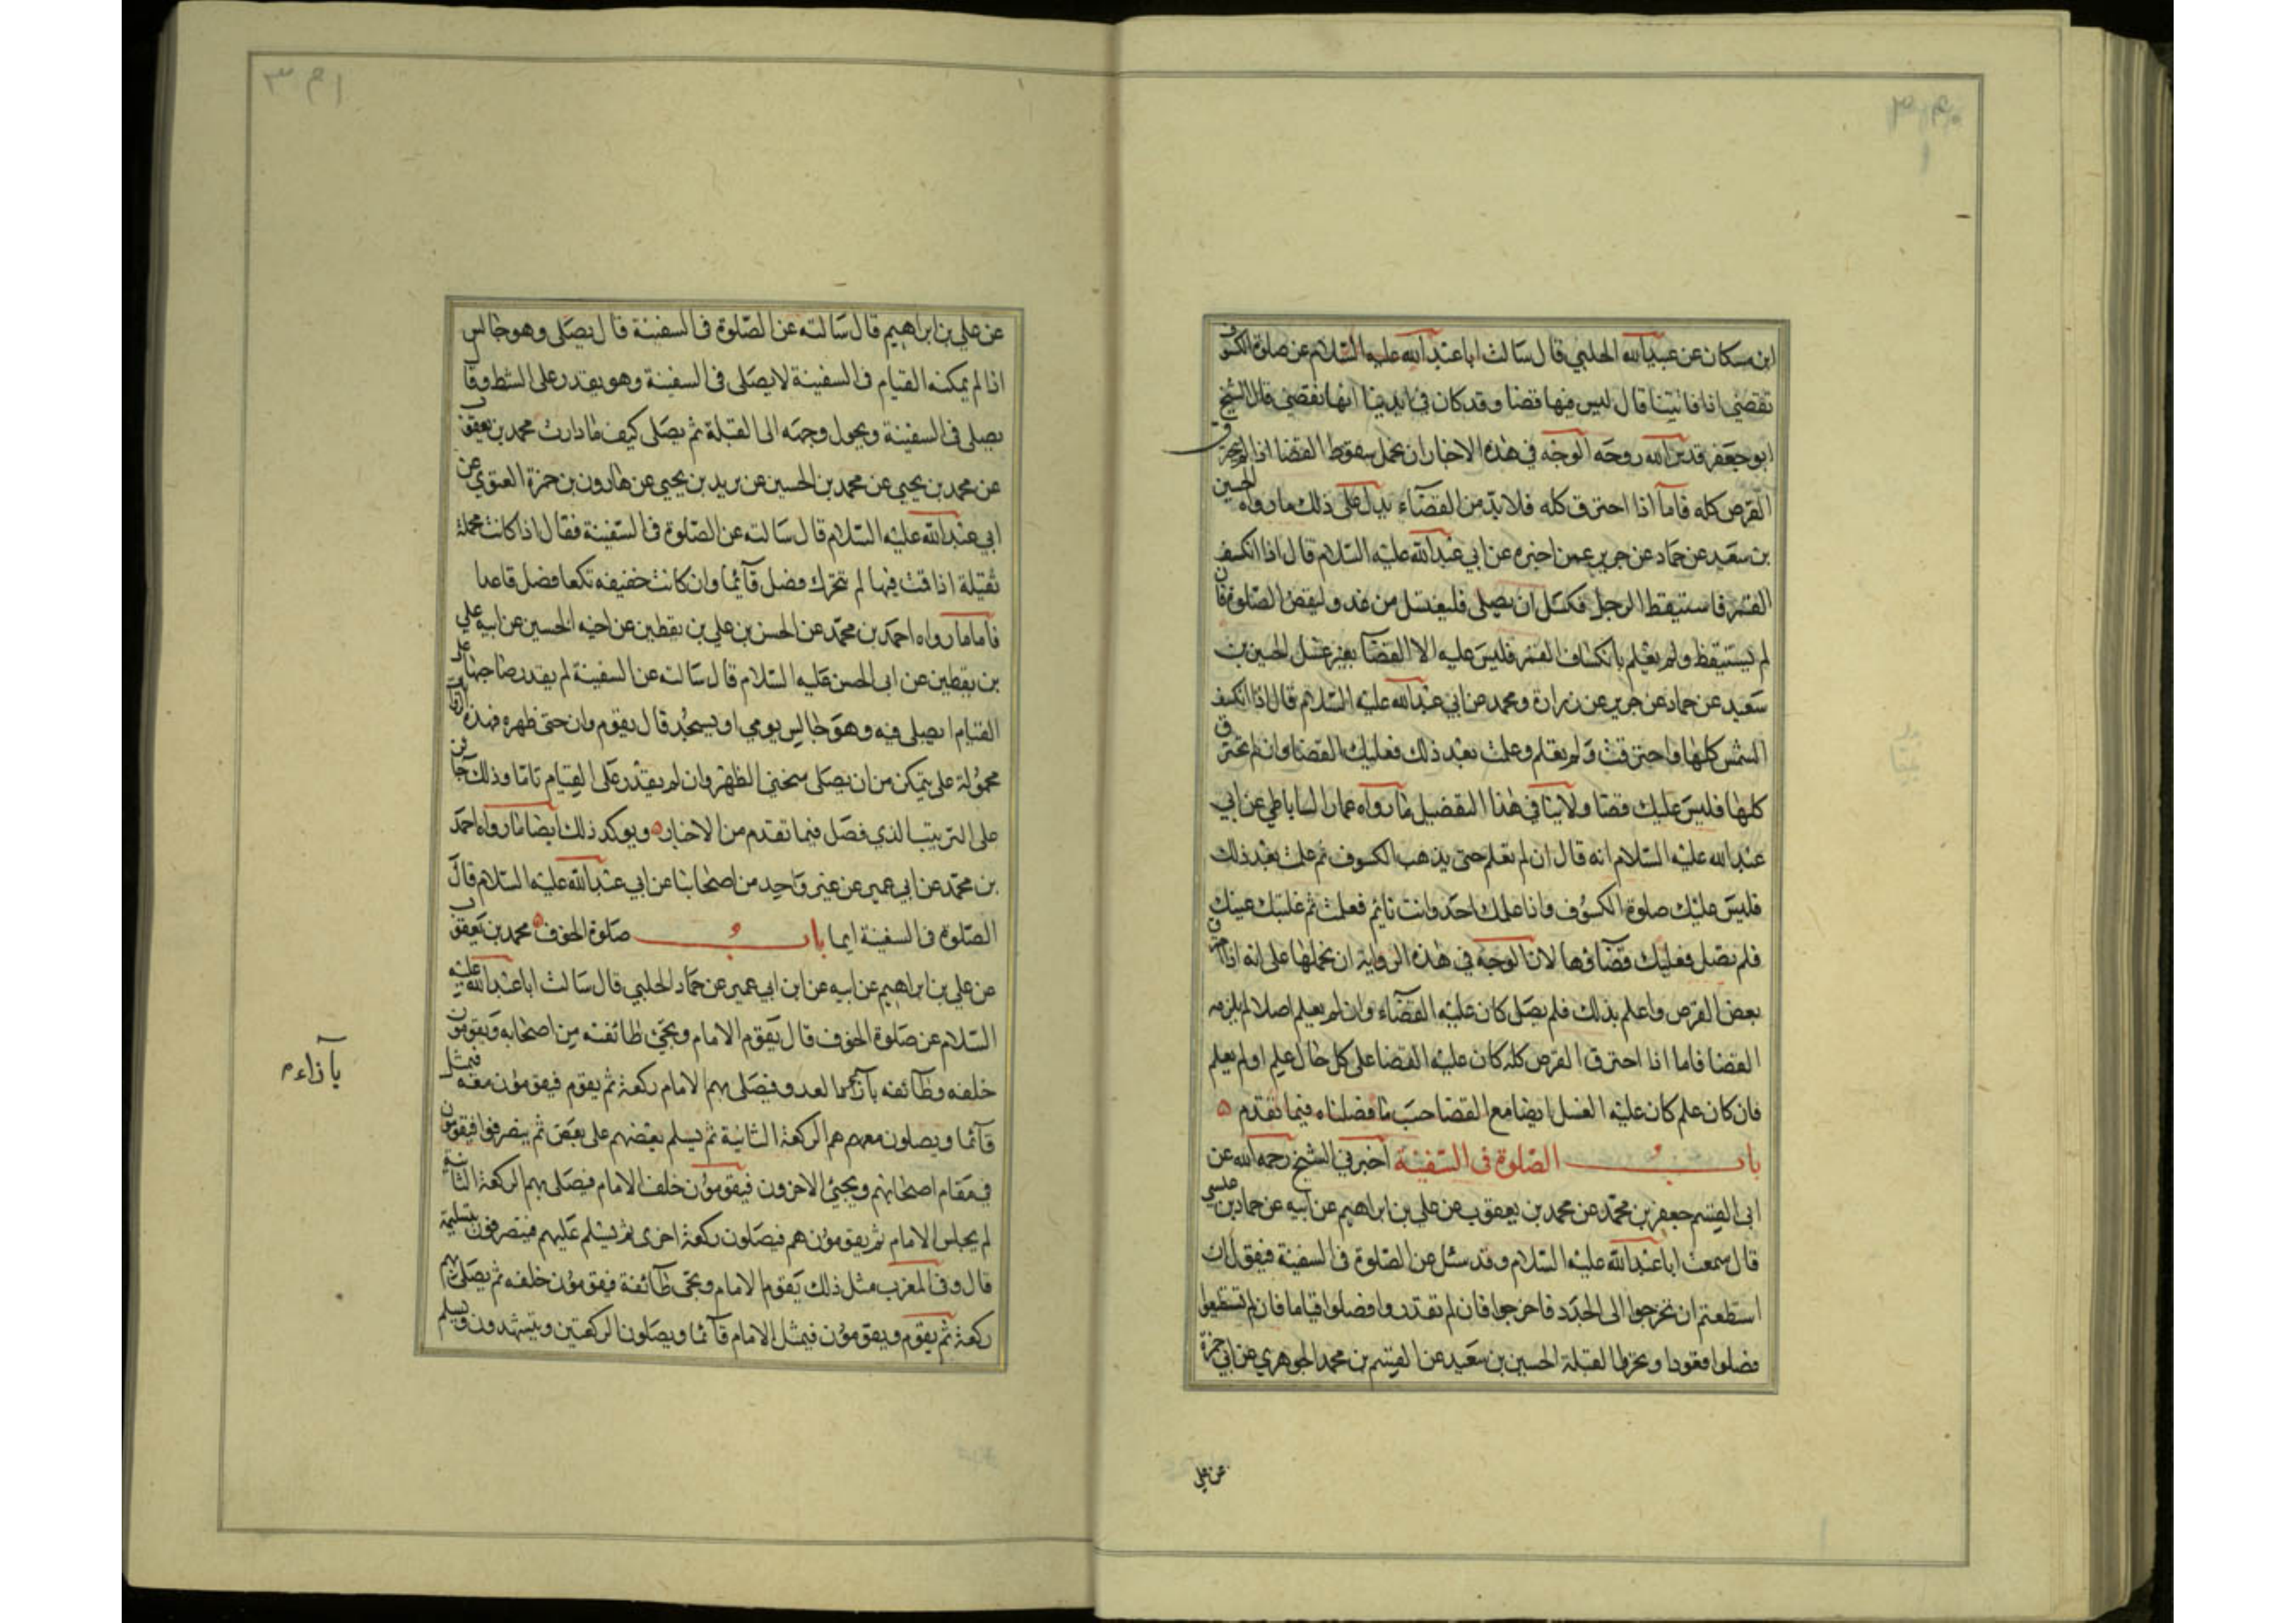 ابن مسكان عن عبيد الله الحلبي قال سالت ابا عبد الله عليه السلام عن صلوة الكسوف
تقضي اذا فاتتنا قال ليس فيها قضا وقد كان في ايدينا انها تقضي قال الشيخ
ابو جعفر قدس الله روحه الوجه في هذه الاخبار ان نحمل سقوط القضا اذا لم يحترق
القرص كله فاما اذا احترق كله فلا بد من القضاء يدل على ذلك ما رواه الحسين
بن سعيد عن حماد عن حريز عمن اخبره عن ابي عبد الله عليه السلام قال اذا انكسف
القمر فاستيقظ الرجل فكسل ان يصلي فليغتسل من غد وليقض الصلوة فان
لم يستيقظ ولم يعلم بانكساف القمر فليس عليه الا القضا بغير غسل الحسين بن
سعيد عن حماد عن حريز عن زرارة ومحمد عن ابي عبد الله عليه السلام قال اذا انكسف
الشمس كلها واحترقت ولم تعلم وعلمت بعد ذلك فعليك القضا وان لم تحترق
كلها فليس عليك قضا ولا ينافي هذا التفصيل ما رواه عمار الساباطي عن ابي
عبد الله عليه السلام انه قال ان لم تعلم حتى يذهب الكسوف ثم علمت بعد ذلك
فليس عليك صلوة الكسوف وان اعلمك احد وانت نائم فعلمت ثم غلبتك عينك
فلم تصل فعليك قضاؤها لان الوجه في هذه الرواية ان نحملها على انه اذا احترق
بعض القرص واعلم بذلك فلم يصل كان عليه القضاء وان لم يعلم اصلا لم يلزمه
القضا فاما اذا احترق القرص كله كان عليه القضا على كل حال علم او لم يعلم
فان كان علم كان عليه الغسل ايضا مع القضا حسب ما فصلناه فيما تقدم
باب الصلوة في السفينة اخبرني الشيخ رحمه الله عن
ابي القسم جعفر بن محمد عن محمد بن يعقوب عن علي بن ابراهيم عن ابيه عن حماد بن عيسى
قال سمعت ابا عبد الله عليه السلام وقد سئل عن الصلوة في السفينة فيقول ان
استطعتم ان تخرجوا الى الجدد فاخرجوا فان لم تقدروا فصلوا قياما فان لم تستطيعوا
فصلوا قعودا وتحروا القبلة الحسين بن سعيد عن القسم بن محمد الجوهري عن ابي حمزة
عن علي
عن علي بن ابراهيم قال سالته عن الصلوة في السفينة قال يصلى وهو جالس
اذا لم يمكنه القيام في السفينة لا يصلى في السفينة وهو يقدر على الشط وقال
يصلي في السفينة ويحول وجهه الى القبلة ثم يصلى كيف ما دارت محمد بن يعقوب
عن محمد بن يحيى عن محمد بن الحسين عن يزيد بن يحيى عن هارون بن حمزة الغنوي عن
ابي عبد الله عليه السلام قال سالته عن الصلوة في السفينة فقال اذا كانت محملة
ثقيلة اذا قمت فيها لم تتحرك فصل قائما وان كانت خفيفه تكفا فصل قاعدا
فاما ما رواه احمد بن محمد عن الحسن بن علي بن يقطين عن اخيه الحسين عن ابيه علي
بن يقطين عن ابي الحسن عليه السلام قال سالته عن السفينة لم يقدر صاحبها على
القيام ايصلى فيه وهو جالس يومي او يسجد قال يقوم وان حتى ظهره فهذه الرواية
محمولة على من يتمكن من ان يصلى منحني الظهر وان لم يقدر على القيام تاما وذلك جائز
على الترتيب الذي فصل فيما تقدم من الاخبار ويوكد ذلك ايضا ما رواه احمد
بن محمد عن ابي عمير عن غير واحد من اصحابنا عن ابي عبد الله عليه السلام قال
الصلوة في السفينة ايما باب صلوة الخوف محمد بن يعقوب
عن علي بن ابراهيم عن ابيه عن ابن ابي عمير عن حماد الحلبي قال سالت ابا عبد الله عليه
السلام عن صلوة الخوف قال يقوم الامام ويجئ طائفه من اصحابه ويقومون
خلفه وطائفه بازاء العدو فيصلى بهم الامام ركعة ثم يقوم فيقومون معه فيمثل
قائما ويصلون معهم هم الركعة الثانية ثم يسلم بعضهم على بعض ثم ينصرفوا فيقومون
في مقام اصحابهم ويجئ الاخرون فيقومون خلف الامام فيصلى بهم الركعة الثانية
ثم يجلس الامام ثم يقومون هم فيصلون ركعة اخرى ثم يسلم عليهم فينصرفون بتسليمة
قال وفي المغرب مثل ذلك يقوم الامام ويجئ طائفة فيقومون خلفه ثم يصلى بهم
ركعة ثم يقوم ويقومون فيمثل الامام قائما ويصلون الركعتين ويتشهدون ويسلم
بازاء م